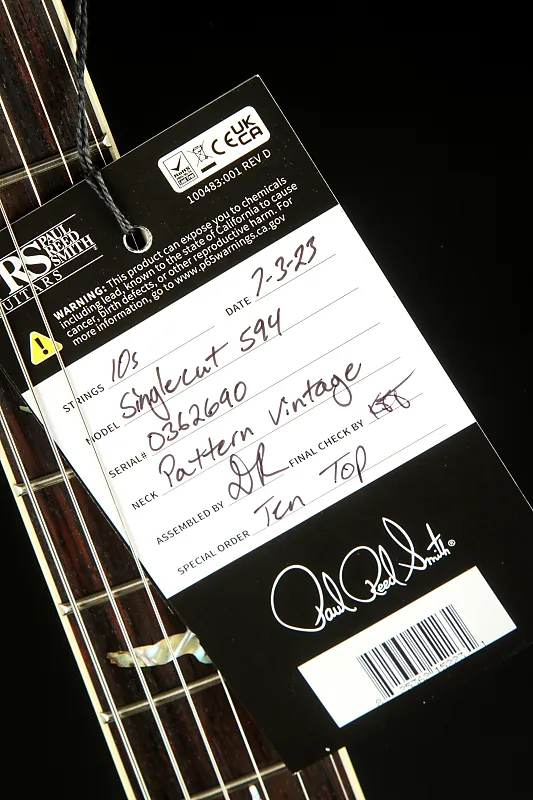 RoHS
CE UK CA
100483:001 REV D
PAUL REED SMITH
GUITARS
WARNING: This product can expose you to chemicals
including lead, known to the state of California to cause
cancer, birth defects, or other reproductive harm. For
more information, go to www.p65warnings.ca.gov
STRINGS 10s DATE 7-3-23
MODEL Singlecut 594
SERIAL# 0362690
NECK Pattern Vintage
ASSEMBLED BY DR FINAL CHECK BY
SPECIAL ORDER Ten Top
Paul Reed Smith®